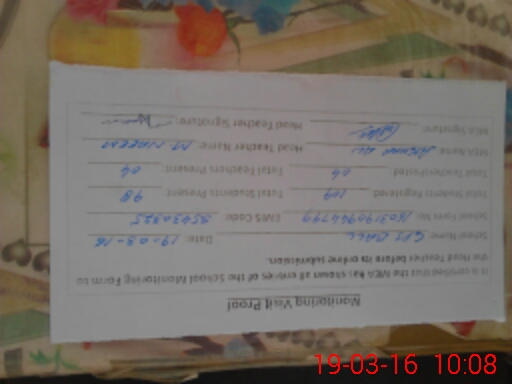 Monitoring Visit Proof
It is certified that the MEA has shown all entries of the School Monitoring Form to
the Head Teacher before its online submission.
School Name: GPS BALL Date: 19-03-16
School Form No: EMIS Code:
Total Students Registered Total Students Present 98
Total Teachers Posted 04 Total Teachers Present 04
MEA Name Head Teacher Name: M. NAEEM
MEA Signature: Head Teacher Signature:
19-03-16 10:08